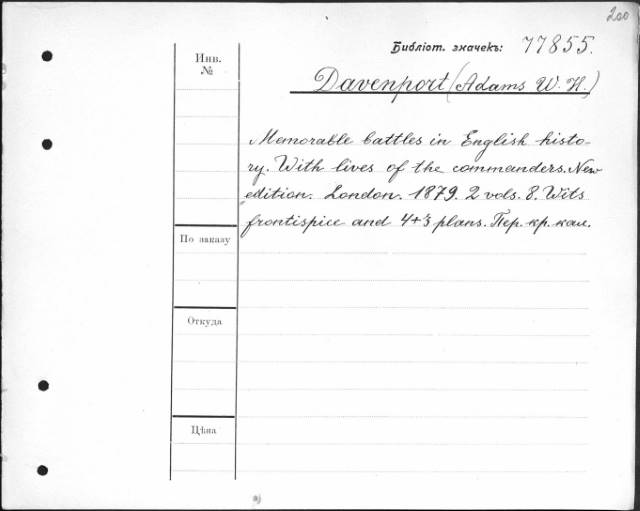 200
Библіот. значекъ: 77855.
Инв.
№
Davenport (Adams W. H.)
Memorable battles in English histo-
ry. With lives of the commanders. New
edition. London. 1879. 2 vols. 8. Wits
frontispice and 4+3 plans. Пер. кр. кал.
По заказу
Откуда
Цѣна